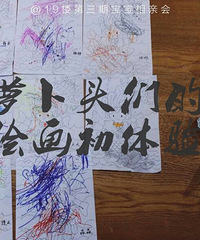 @19楼第三期宝宝相亲会
萝卜头们的
绘画初体验
淼淼